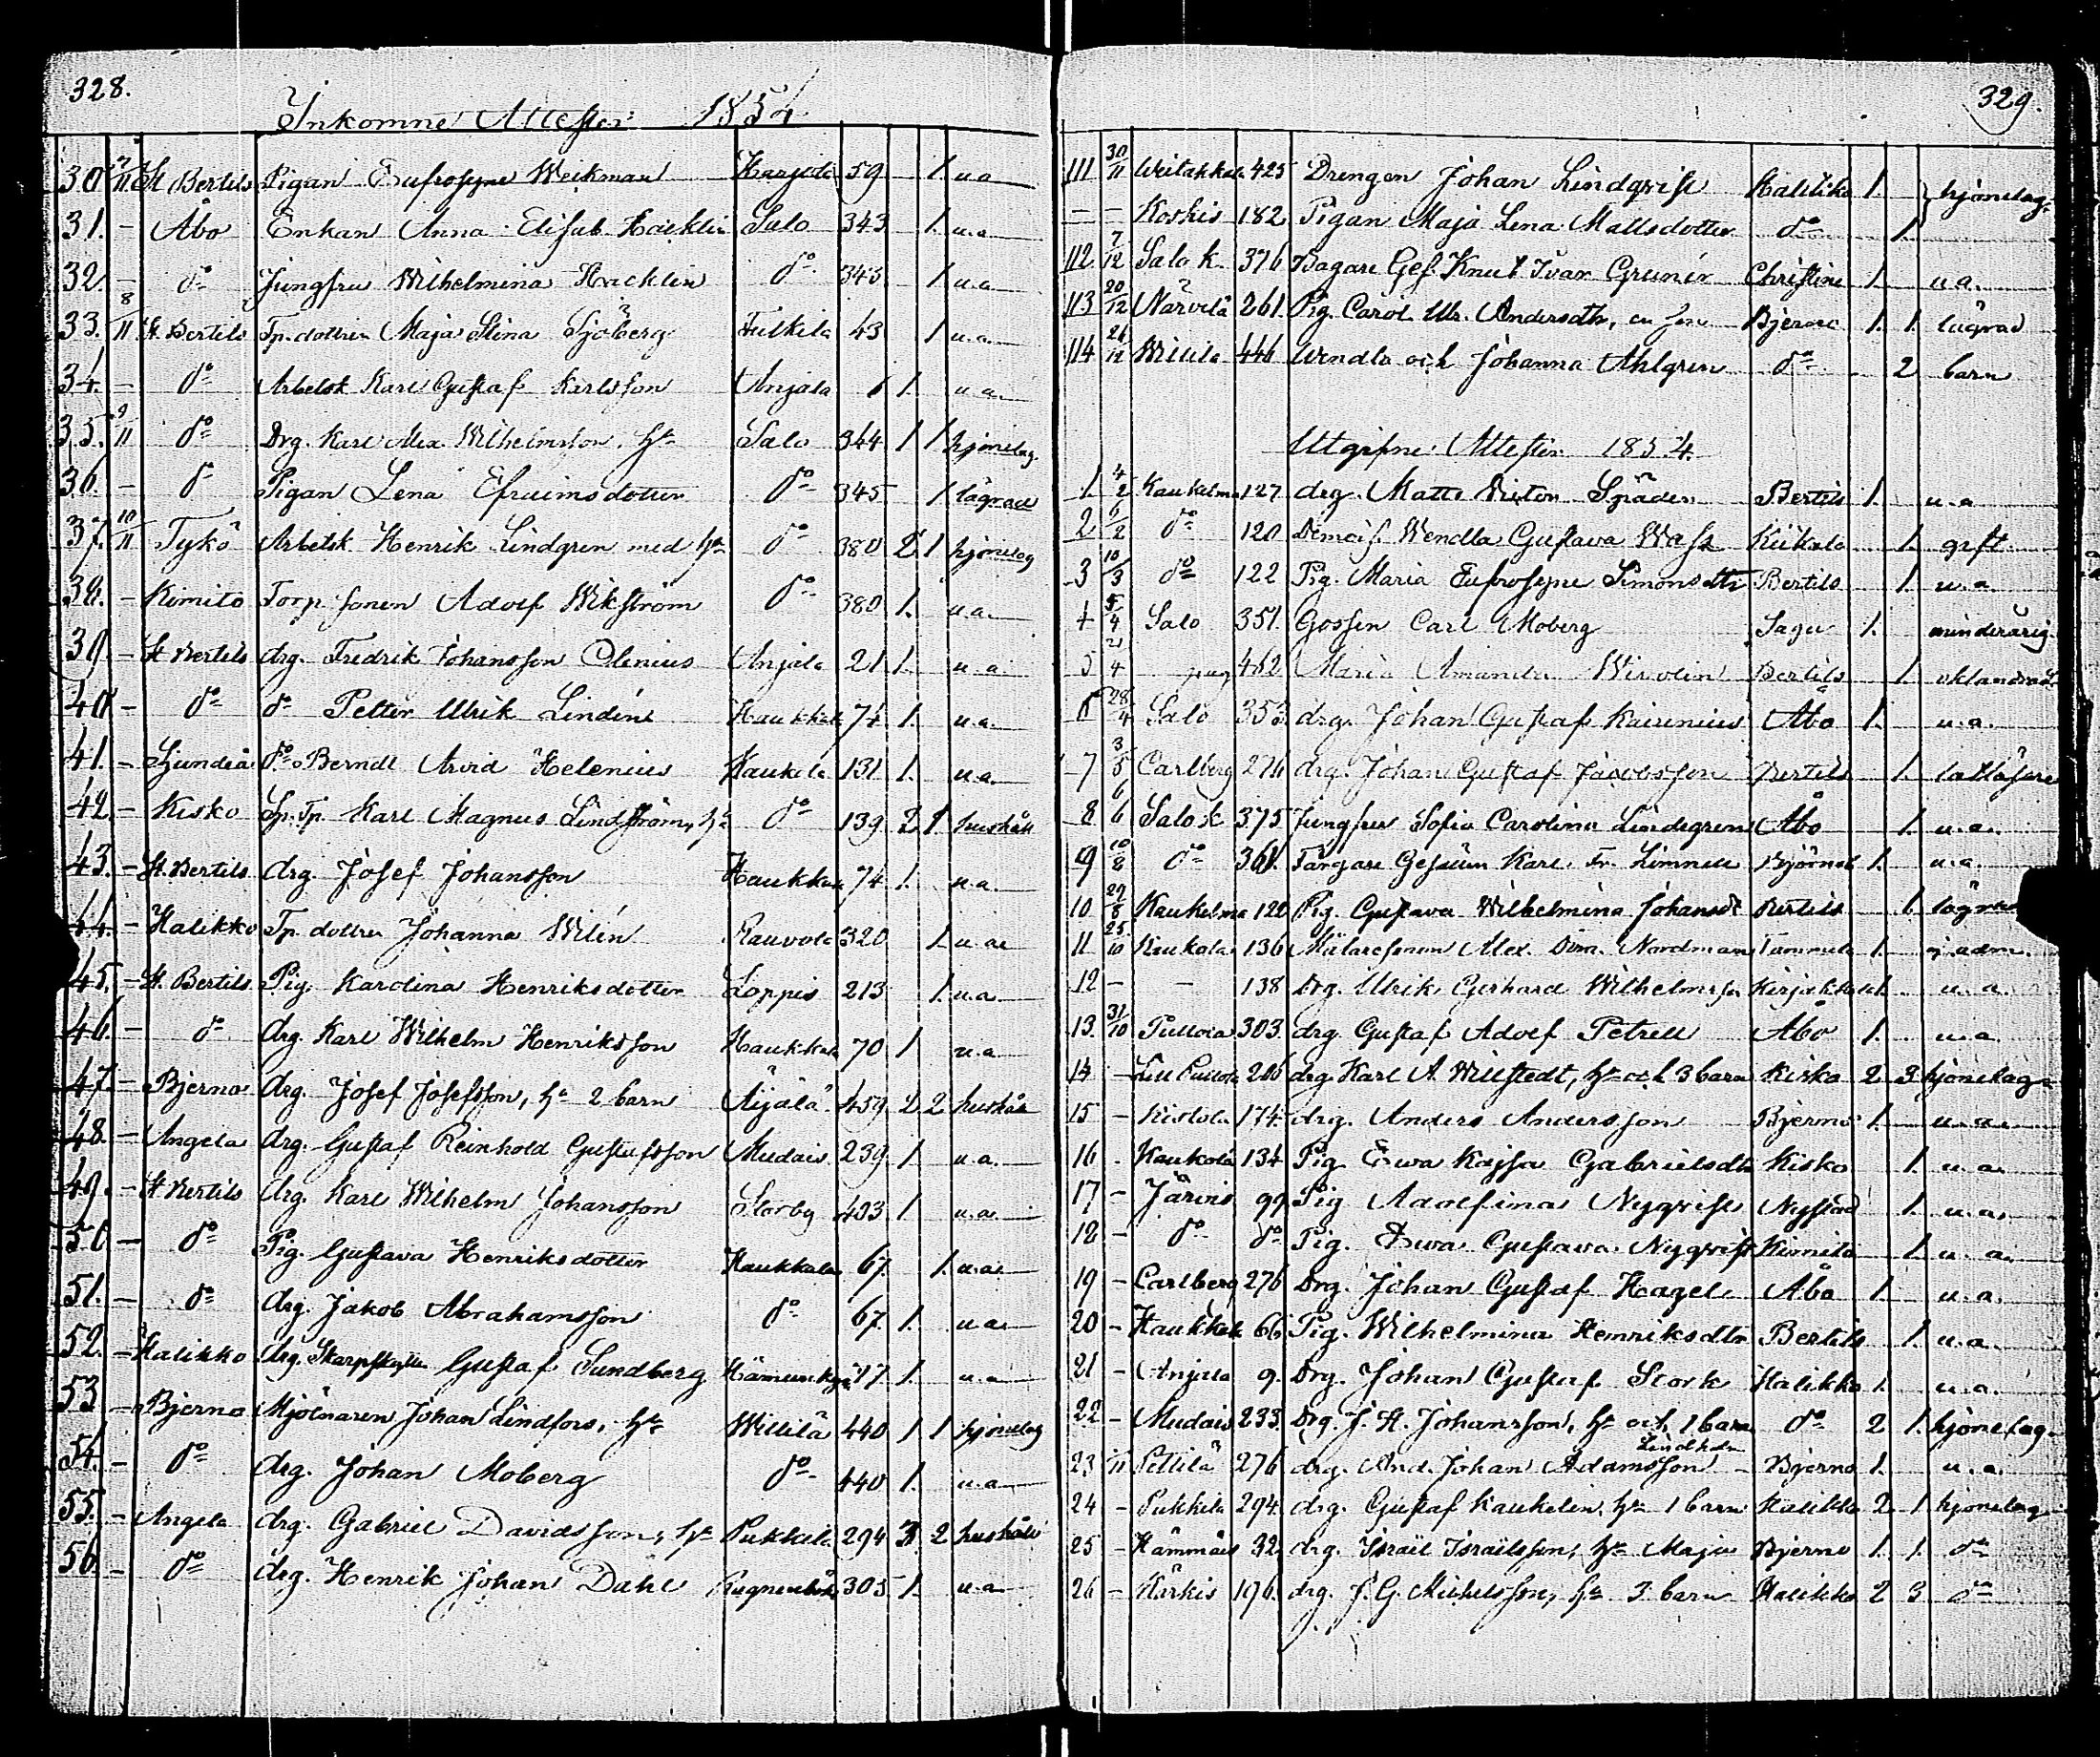 328.
Inkomne Attester 1854
30 7/11 St Bertils Pigan Eufrosyne Weckman Karjala 59 1 u.a
31. – Åbo Enkan Anna Elisab. Hacklin Salo 343 1. u.a
32. – do Jungfru Wilhelmina Hacklin do 343 1 u.a
33. 8/11 St Bertils Tp. dottren Maja Stina Sjöberg 43 1 u.a.
34. – do Arbetsk Karl Gustaf Karlsson Anjala 6 1. u.a.
35. 9/11 do Drg. Karl Alex. Wilhelmsson, hu Salo 344 1 1 hjonelag.
36. – do Pigan Lena Efraimsdotter do 345 1 lägrad
37. 10/11 Tykö Arbetsk Henrik Lindgren med hu do 380 2 1 hjonelag
38. – Kimito Torp. sonen Adolf Wikström do 380 1. u.a.
39. – St Bertils drg. Fredrik Johansson Clenius Anjala 21 1. u.a.
40 – do do Petter Ulrik Lindén Haukkala 74 1. u.a.
41. – Sjundeå do Berndt Arvid Helenius Kaukola 131 1. u.a.
42 – Kisko Sp. Tp. Karl Magnus Lindström, hu do 139 2 1 hushåll
43. – St. Bertils drg. Josef Johansson Haukkala 74 1. u.a.
44. – Halikko Tp. dottren Johanna Wilén Rauvola 320 1 u.a
45. – St. Bertils Pig. Karolina Henriksdotter Loppis 213 1. u.a
46. – do drg. Karl Wilhelm Henriksson Haukkala 70 1 u.a
47. – Bjerno drg. Josef Josefsson, hu 2 barn Äijälä 459 2 2 hushåll
48. – Angela drg. Gustaf Reinhold Gustafsson Mudais 239 1 u.a.
49. – St Bertils drg. Karl Wilhelm Johansson Storby 433 1 u.a
50 – do Pig. Gustava Henriksdotter Haukkala 67. 1. u.a
51. – do drg. Jakob Abrahamsson do 67 1. u.a
52. – Halikko drg. Skarpskytten Gustaf Sundberg 1. u.a
53 – Bjerno Mjölnaren Johan Lindfors, hu Willilä 440 1 1 hjonelag
54. – do drg. Johan Moberg do 440 1. u.a
55. – Angela drg. Gabriel Davidsson, hu Pukkila 294 3 2 hushåll
56. – do drg. Henrik Johan Dahl 305 1. u.a
329.
111 30/11 425 Drengen Johan Lindqvist Halikko 1. hjonelag.
– – Korkis 182. Pigan Maja Lena Mattsdotter do 1.
112 7/12 Salo k. 376 Bagare Ges. Knut Ivar Grunér Christine 1. u.a.
113 20/12 Närvilä 261. Pig. Carol. Ulr. Andersdtr, en son Bjerno 1. 1. lägrad
114 26/12 Willilä 446 Wendla och Johanna Ahlgren do 2 barn
Utgifne Attester 1854.
1 4/2 Kaukelma 127 drg. Matts Victor Spåder Bertils 1. u.a
2 6/2 do 120 Demois. Wendla Gustava Wass Kiikala 1. gift.
3 10/3 do 122 Pig. Maria Eufrosyne Simonsdtr Bertils 1. u.a.
4 5/4 Salo 351. Gossen Carl Moberg Sagu 1. minderårig
5 21/4 462 Maria Amanda Wirolin Bertils 1. oklandrad
6 28/4 Salo 353 drg. Johan Gustaf Kairenius Åbo 1. u.a.
7 3/5 Carlberg 276 drg. Johan Gustaf Jacobsson Bertils 1. lattläsare
8 6/6 Salo k 375 Jungfru Sofia Carolina Lindegren Åbo 1. u.a.
9 10/8 do 361. Färgare Gesällen Karl Fr. Limnell Björneb 1. u.a.
10 29/8 Kaukelma 120 Pig. Gustava Wilhelmina Johansdt Bertils 1. lägrad
11 25/10 Kaukola 136 Målaresonen Alex. Nordman Tammela 1. ej adm.
12 – – 138 Drg. Ulrik Gerhard Wilhelmsson Kirjakkala 1. u.a.
13. 31/10 Pullola 303. drg. Gustaf Adolf Petrell Åbo 1. u.a.
14 – 206 drg Karl A. Willstedt, hu och 3 barn Kisko 2 3 hjonelag
15 – 174. drg. Anders Andersson Bjerno 1. u.a.
16 – Kaukola 134 Pig. Ewa Kajsa Gabrielsdtr Kisko 1. u.a.
17 – Järvis 99. Pig Adolfina Nyqvist Nystad 1. u.a.
18 – do do Pig. Ewa Gustava Nyqvist Kimito 1. u.a.
19 – Carlberg 276 Drg. Johan Gustaf Hagel Åbo 1. u.a.
20 – Haukkala 66. Pig. Wilhelmina Henriksdtr Bertils 1. u.a.
21 – Anjala 9. Drg. Johan Gustaf Stork Halikko 1. u.a.
22 – Mudais 233. Drg. J. H. Johansson, hu och 1 barn do 2 1. hjonelag
23 /11 Pettilä 276 drg. And. Johan Adamsson Lindholm Bjerno 1. u.a.
24 – Pukkila 294. drg. Gustaf Kaukelin, hu 1 barn Halikko 2 1 hjonelag
25 – Hämmäis 32. drg. Israël Israelsson, hu Maja Bjerno 1. 1. do
26 – Kärkis 196. drg. J. G. Michelsson, hu 3 barn Halikko 2 3 do